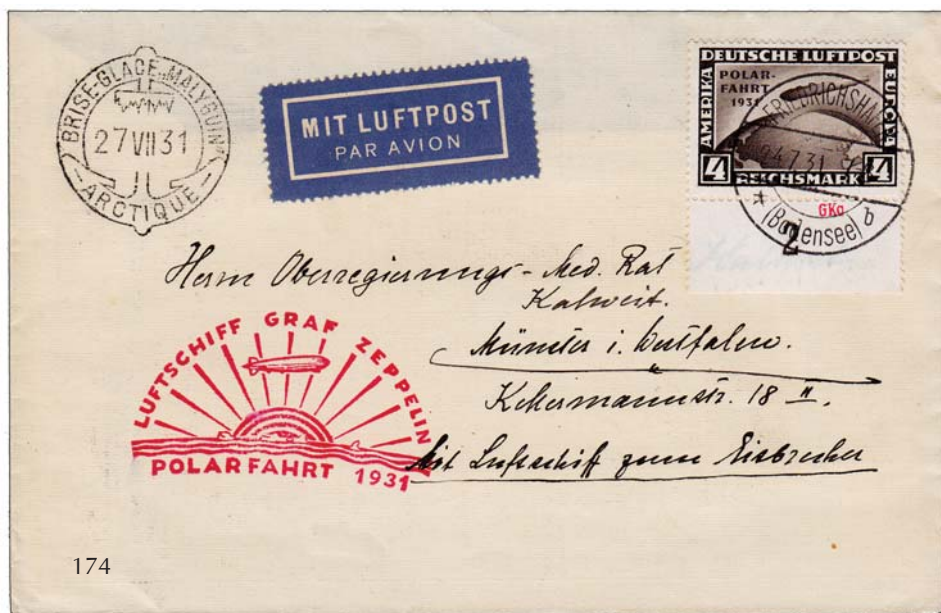 BRISE-GLACE „MALYGUIN"
27 VII 31
ARCTIQUE
MIT LUFTPOST
PAR AVION
DEUTSCHE LUFTPOST
AMERIKA
EUROPA
POLAR-
FAHRT
1931
4
REICHSMARK
4
FRIEDRICHSHAFEN
24.7.31
(Bodensee) b
GKa
2
Herrn Oberregierungs-Med. Rat
Kalweit.
Münster i. Westfalen.
Kellermannstr. 18 II.
Mit Luftschiff zum Eisbrecher
LUFTSCHIFF GRAF ZEPPELIN
POLARFAHRT 1931
174